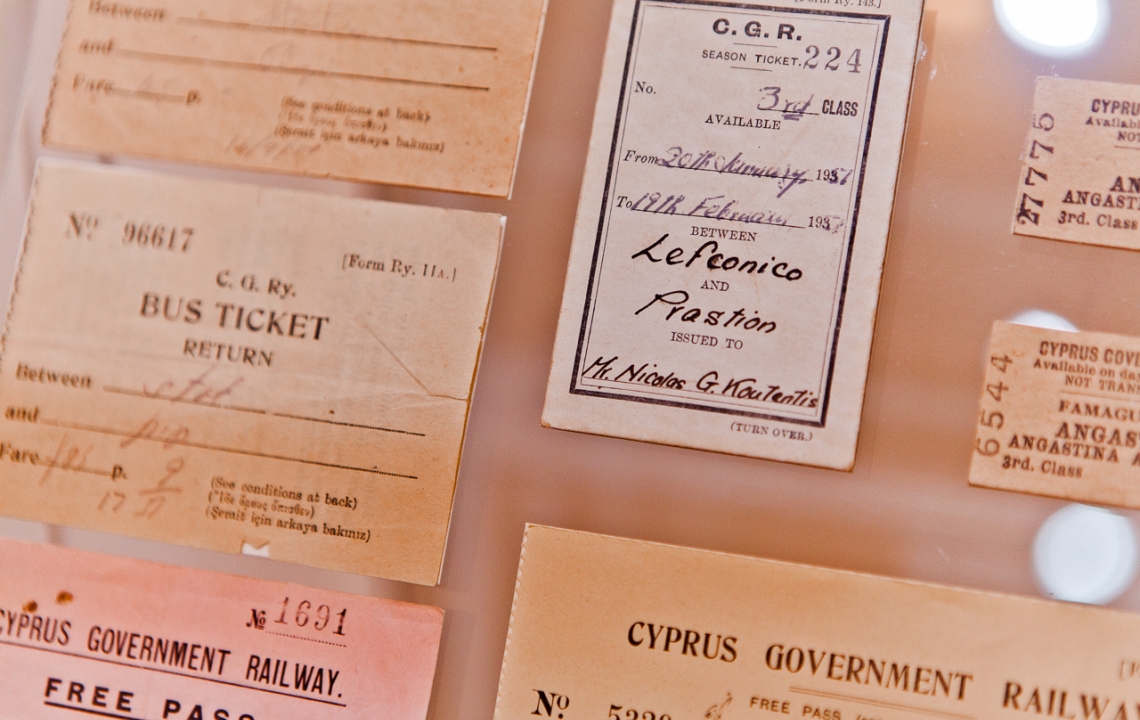 Between
and
Fare p.
(See conditions at back)
(Ἰδὲ ὅρους ὄπισθεν)
(Şerait için arkaya bakınız)
Nº 96617
[Form Ry. 11A.]
C. G. Ry.
BUS TICKET
RETURN
Between
and
Fare p.
(See conditions at back)
(Ἰδὲ ὅρους ὄπισθεν)
(Şerait için arkaya bakınız)
№ 1691
CYPRUS GOVERNMENT RAILWAY.
FREE PASS
[Form Ry. 143.]
C. G. R.
SEASON TICKET. 224
No.
3rd CLASS
AVAILABLE
From 20th January 19
To 19th February 19
BETWEEN
Lefconico
AND
Prastion
ISSUED TO
Mr. Nicolas G. Koutentis
(TURN OVER.)
27775
CYPRU
Availab
NOT
AN
ANGASTI
3rd. Class
6544
CYPRUS GOV
Available on day
NOT TRAN
FAMAGU
ANGAS
ANGASTINA A
3rd. Class
CYPRUS GOVERNMENT RAILWA
Nº 5320
FREE PASS